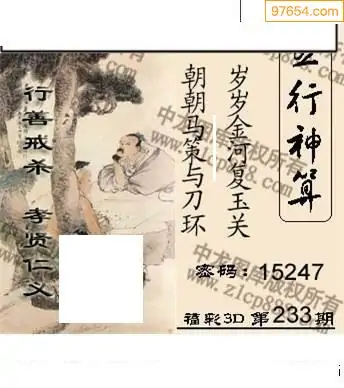 97654.com
行善戒杀 孝贤仁义
岁岁金河复玉关
朝朝马策与刀环
五行神算
密码：15247
福彩3D 第233期
中龙图库版权所有
中龙图库版权所有